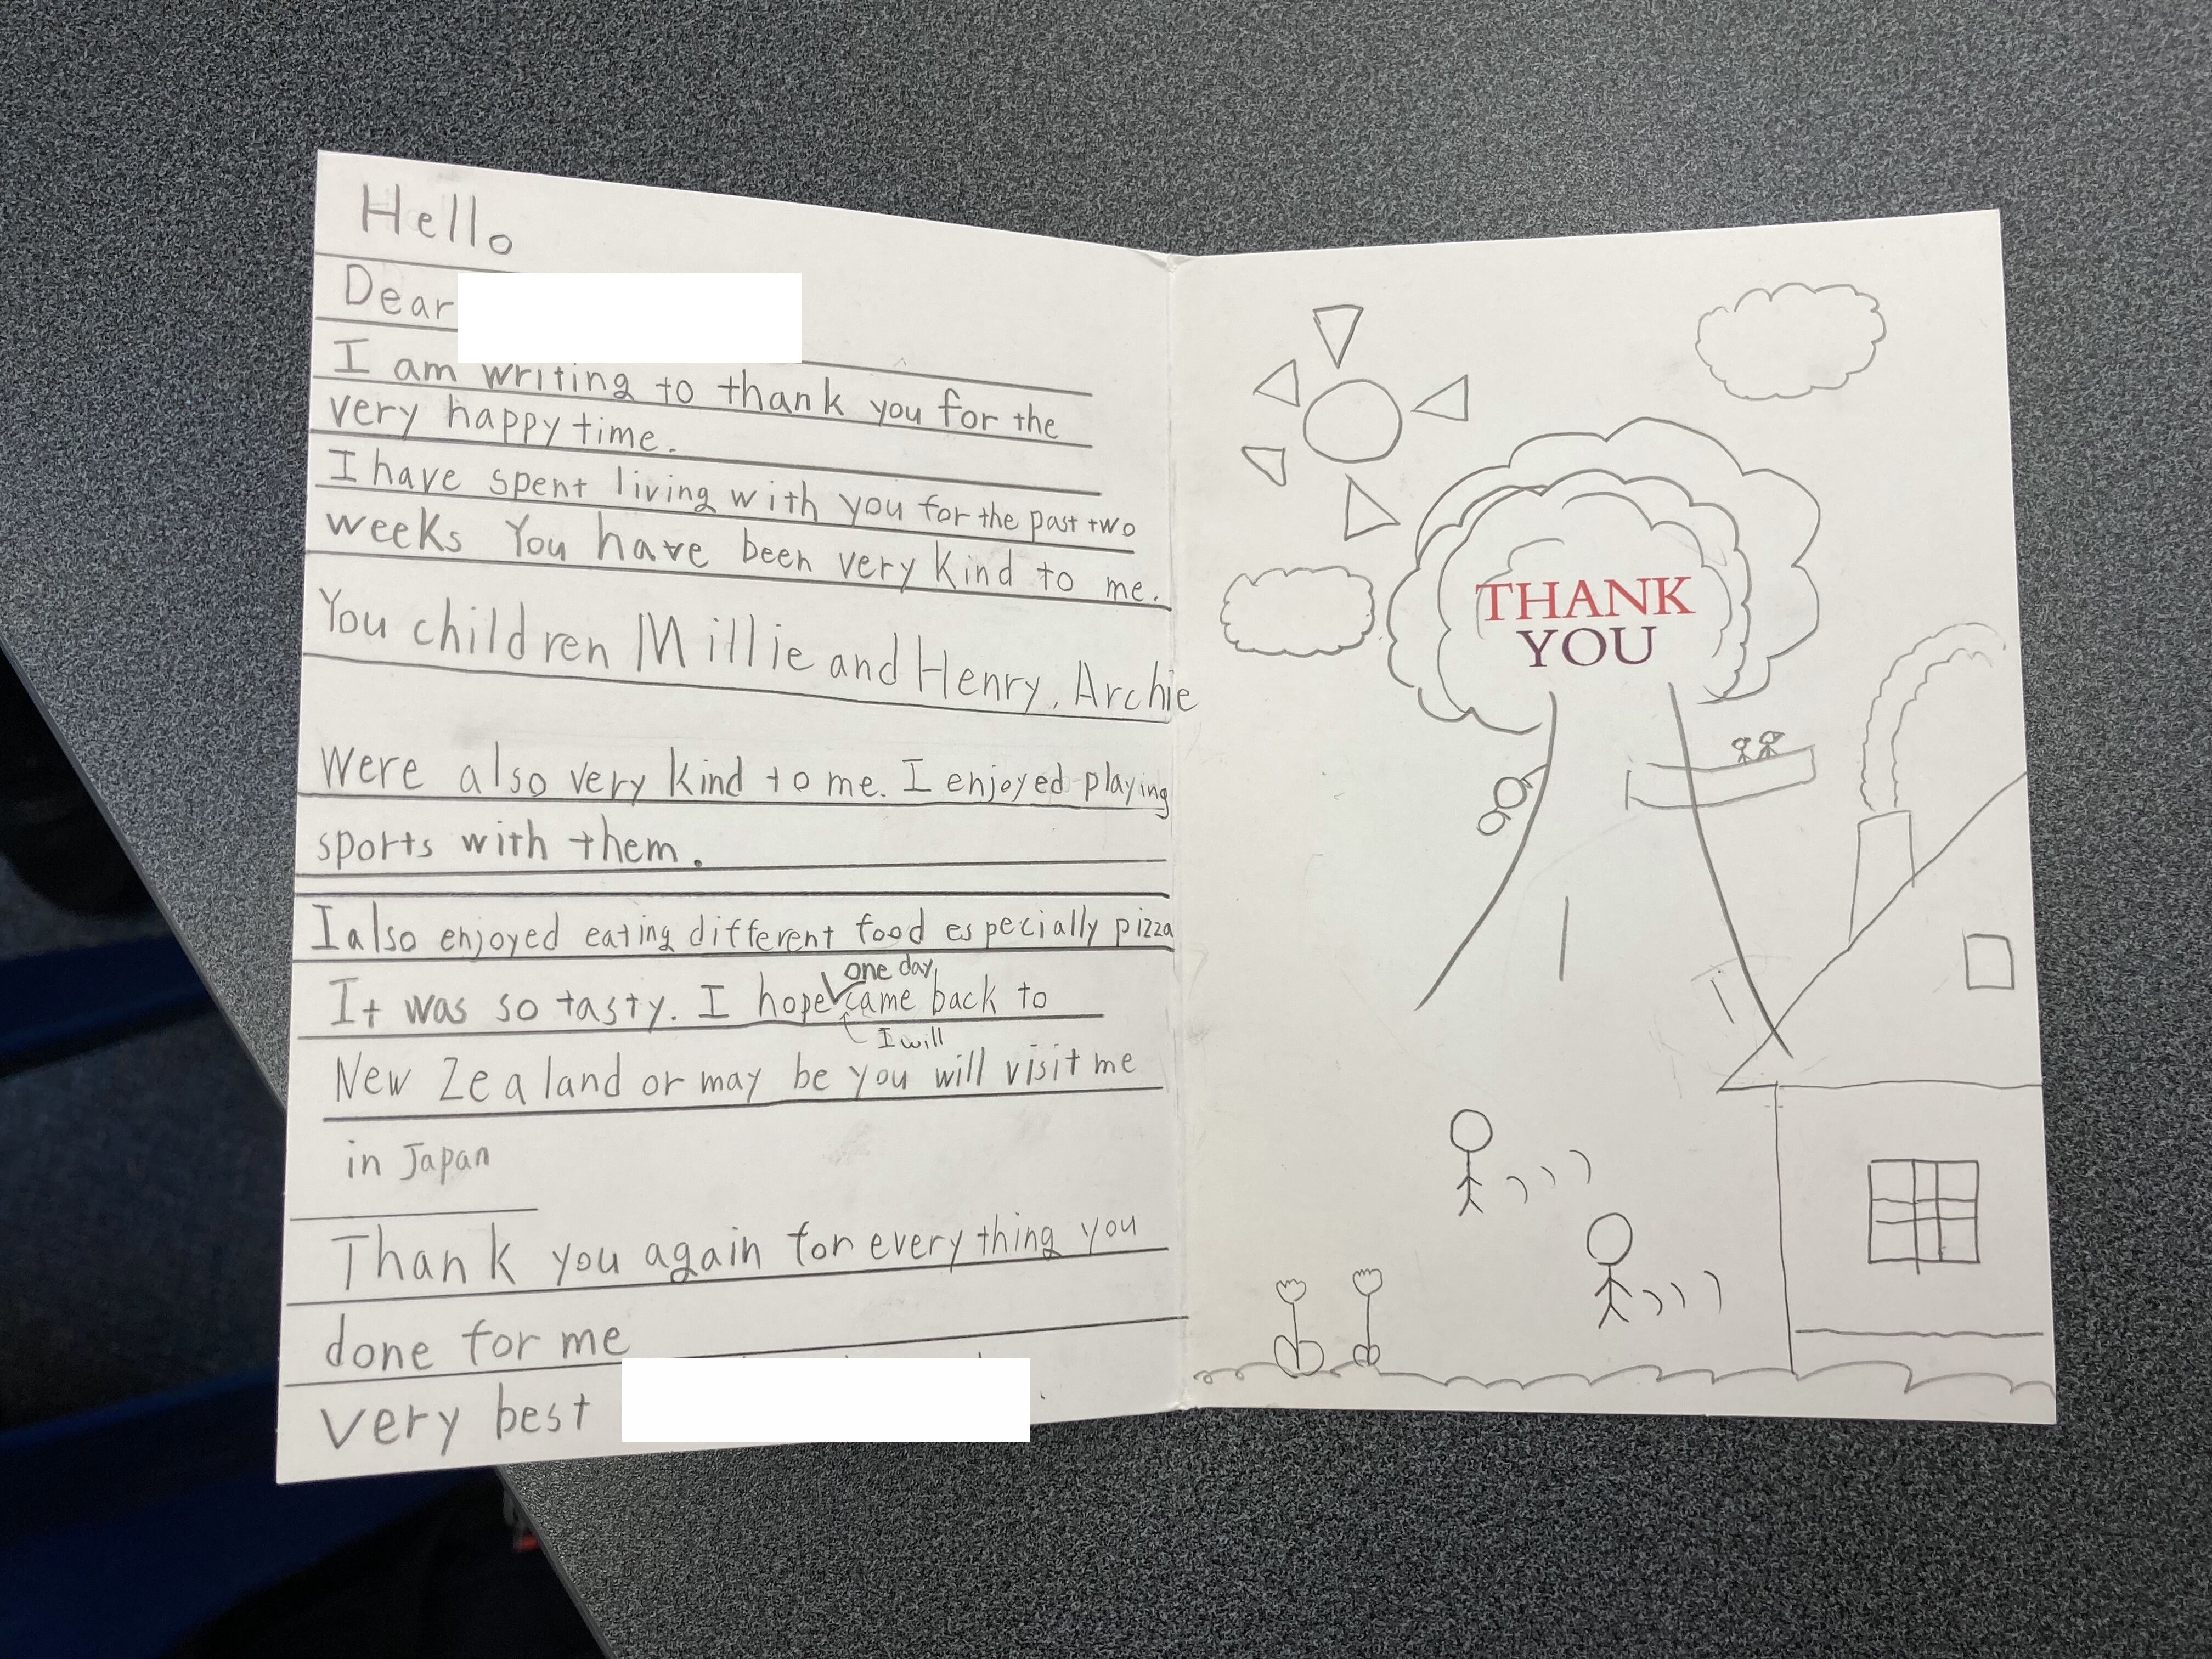 Hello
Dear
I am writing to thank you for the
very happy time.
I have spent living with you for the past two
weeks You have been very kind to me.
You children Millie and Henry, Archie
were also very kind to me. I enjoyed playing
sports with them.
I also enjoyed eating different food especially pizza
one day,
It was so tasty. I hope came back to
I will
New Zealand or may be you will visit me
in Japan
Thank you again for every thing you
done for me
very best
THANK
YOU